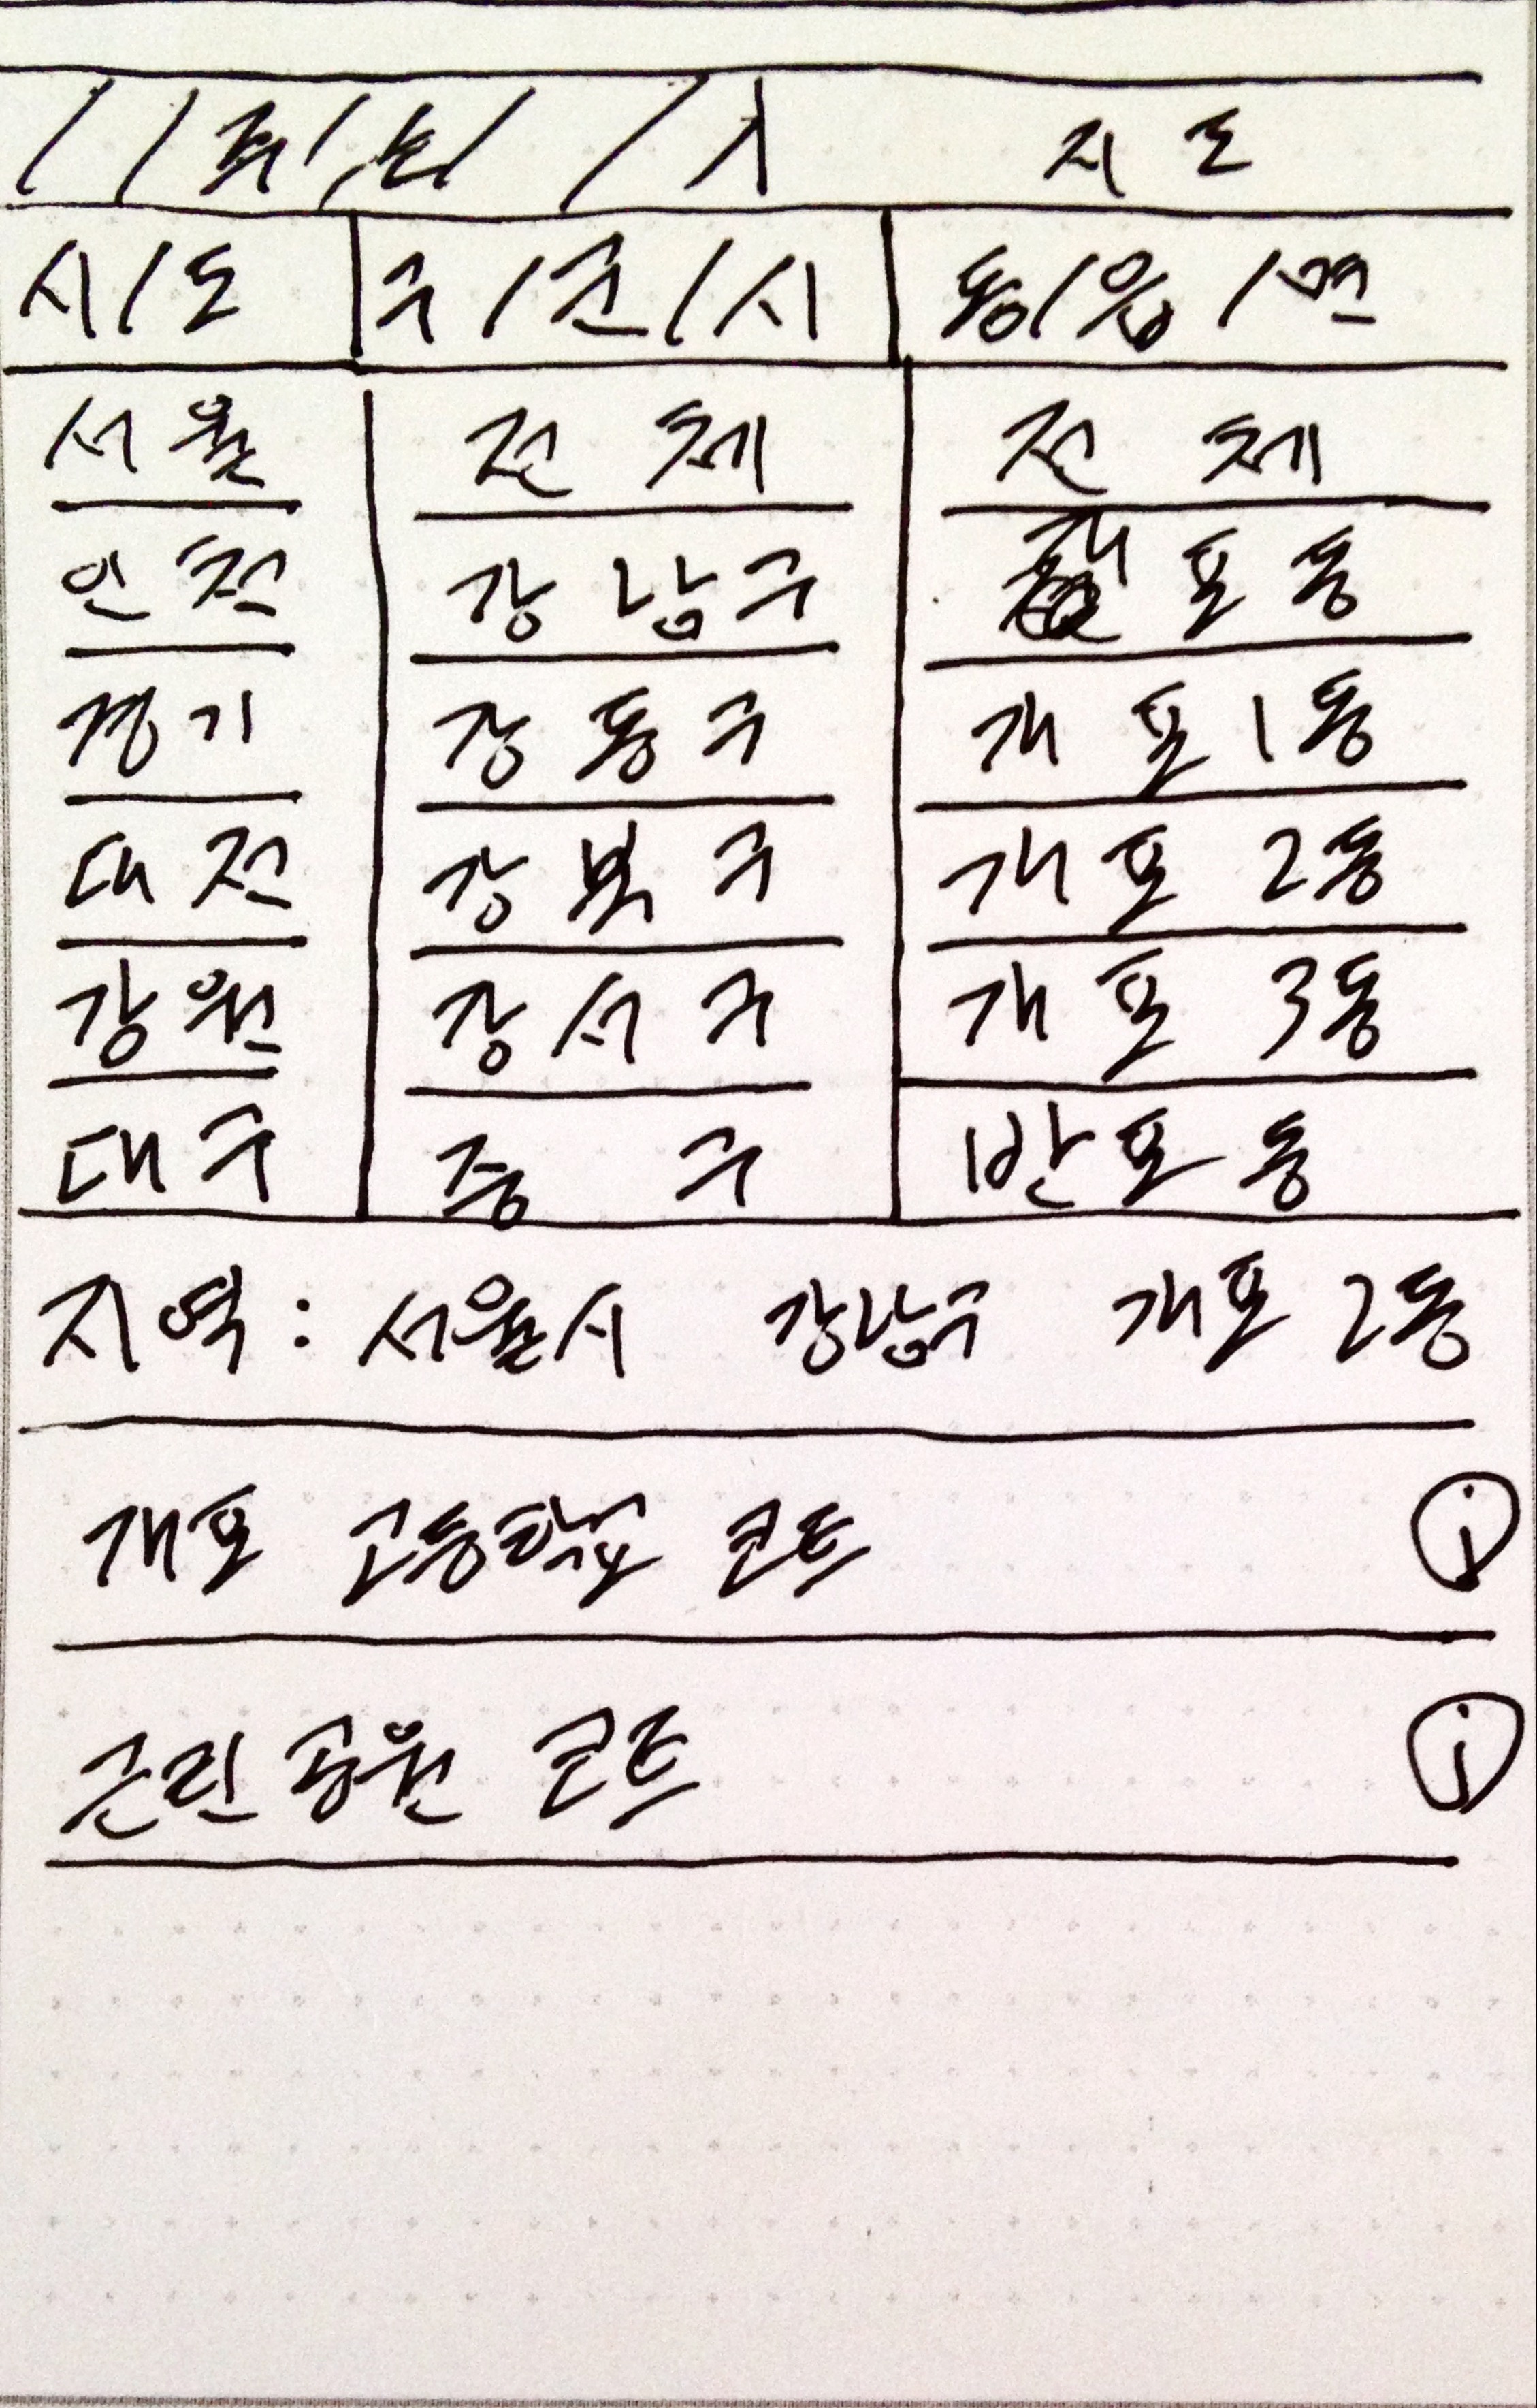 지도
시/도 구/군/시 동/읍/면
서울 전체 전체
인천 강남구 포동
경기 강동구 개포1동
대전 강북구 개포 2동
강원 강서구 개포 3동
대구 중구 반포동
지역: 서울시 강남구 개포 2동
개포 고등학교 코트 i
근린공원 코트 i